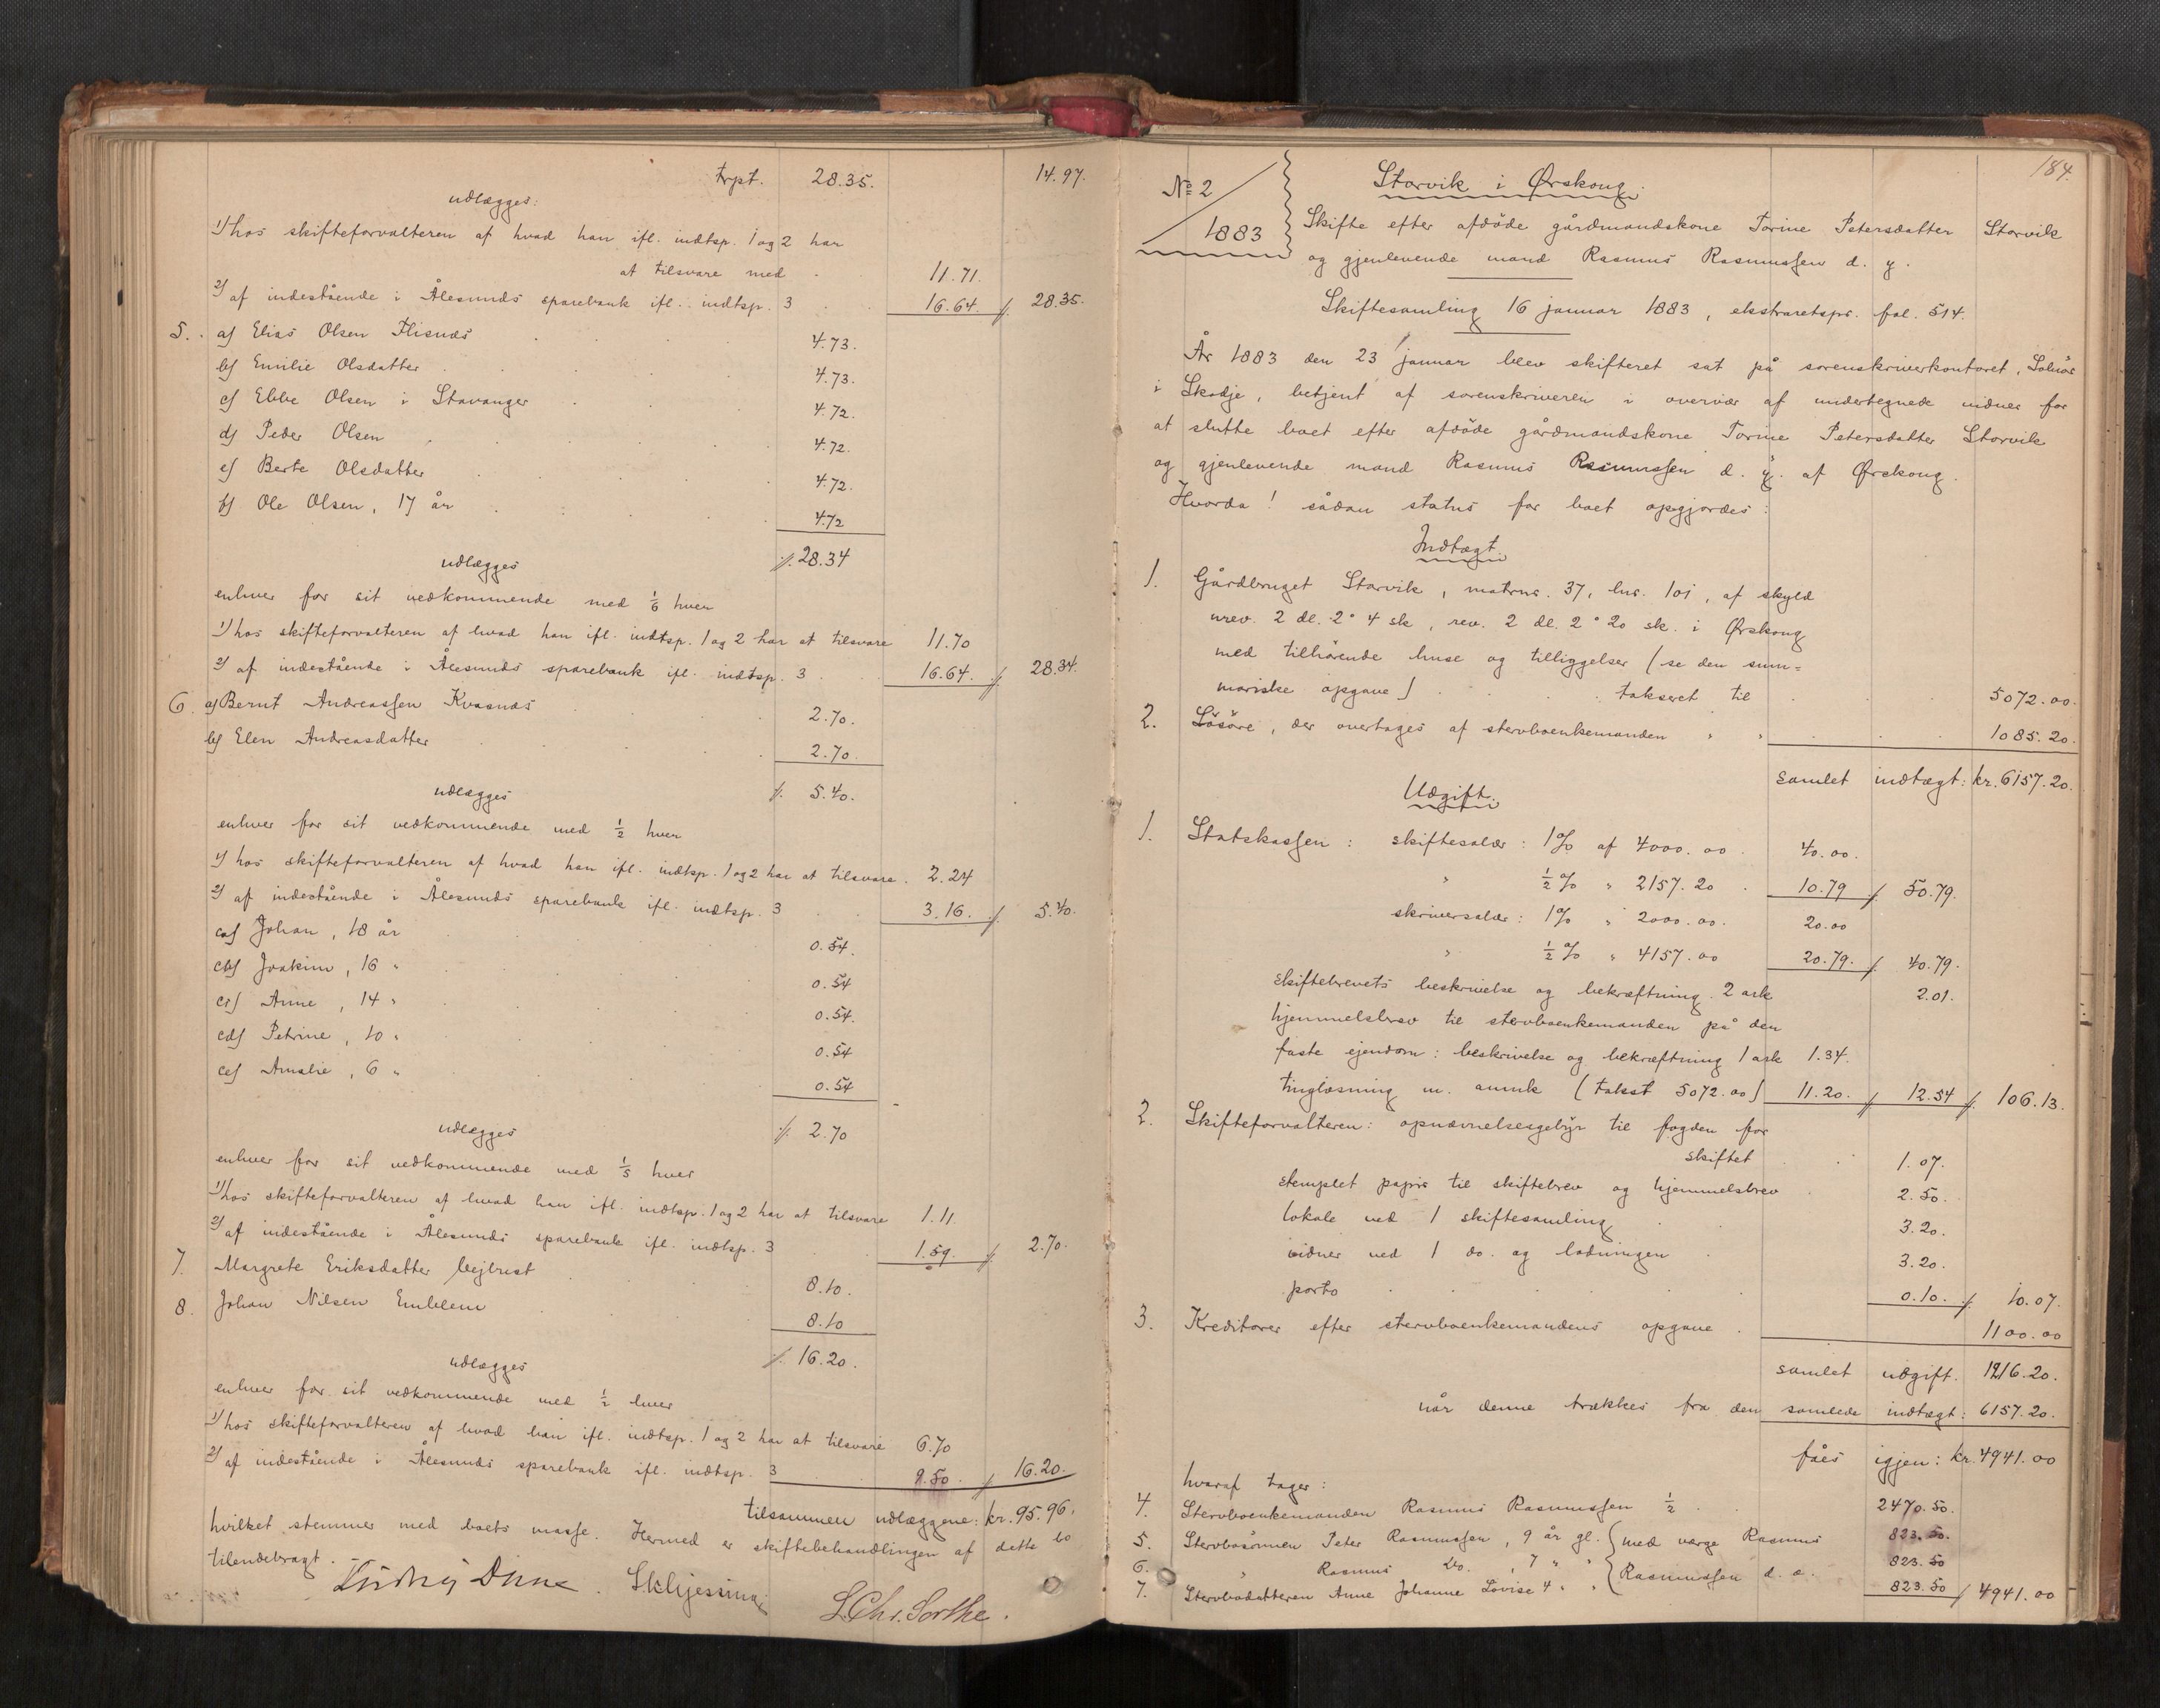 trpt. 28.35. 14.97.
udlægges:
1) hos skifteforvalteren af hvad han ifl. indtsp. 1 og 2 har
at tilsvare med 11.71.
2) af indestående i Ålesunds sparebank ifl. indtsp. 3 16.64. ./. 28.35.
5. a) Elias Olsen Flisnæs 4.73.
b) Emilie Olsdatter 4.73.
c) Ebbe Olsen i Stavanger 4.72.
d) Peder Olsen 4.72.
e) Berte Olsdatter 4.72.
f) Ole Olsen, 17 år 4.72
udlægges ./. 28.34
enhver for sit vedkommende med 1/6 hver
1) hos skifteforvalteren af hvad han ifl. indtsp. 1 og 2 har at tilsvare 11.70
2) af indestående i Ålesunds sparebank ifl. indtsp. 3 16.64. ./. 28.34.
6. a) Bernt Andreassen Kvasnæs 2.70.
b) Elen Andreasdatter 2.70.
udlægges ./. 5.40.
enhver for sit vedkommende med 1/2 hver
1) hos skifteforvalteren af hvad han ifl. indtsp. 1 og 2 har at tilsvare. 2.24
2) af indestående i Ålesunds sparebank ifl. indtsp. 3 3.16. ./. 5.40.
ca) Johan, 18 år 0.54.
cb) Joakim, 16 " 0.54
cc) Anne, 14 " 0.54.
cd) Petrine, 10 " 0.54
ce) Amalie, 6 " 0.54
udlægges ./. 2.70
enhver for sit vedkommende med 1/5 hver
1) hos skifteforvalteren af hvad han ifl. indtsp. 1 og 2 har at tilsvare 1.11.
2) af indestående i Ålesunds sparebank ifl. indtsp. 3 1.59. ./. 2.70.
7. Margrete Eriksdatter Vejbust 8.10.
8. Johan Nilsen Emblem 8.10
udlægges ./. 16.20.
enhver for sit vedkommende med 1/2 hver
1) hos skifteforvalteren af hvad han ifl. indtsp. 1 og 2 har at tilsvare 6.70
2) af indestående i Ålesunds sparebank ifl. indtsp. 3 9.50. ./. 16.20.
tilsammen udlæggene: kr. 95.96.
hvilket stemmer med boets masse. Hermed er skiftebehandlingen af dette bo
tilendebragt.
L. Chr. Sorthe.
184.
No 2
1883
Storvik i Ørskoug.
Skifte efter afdöde gårdmandskone Torine Petersdatter Storvik
og gjenlevende mand Rasmus Rasmussen d. y.
Skiftesamling 16 januar 1883, ekstraretspr. fol. 514.
År 1883 den 23 januar blev skifteret sat på sorenskriverkontoret, Solnör
i Skodje, betjent af sorenskriveren i overvær af undertegnede vidner for
at slutte boet efter afdöde gårdmandskone Torine Petersdatter Storvik
og gjenlevende mand Rasmus Rasmussen d. y. af Ørskoug.
Hvorda! sådan status for boet opgjordes:
Indtægt.
1. Gårdbruget Storvik, matrnr. 37, lnr. 101, af skyld
urev. 2 dl. 2 ° 4 sk, rev. 2 dl. 2 ° 20 sk. i Ørskoug
med tilhörende huse og tilliggelser (se den sum=
mariske opgave) takseret til 5072.00.
2. Lösöre, der overtages af stervboenkemanden " " 1085.20.
samlet indtægt: kr. 6157.20.
Udgift.
1. Statskassen: skiftesalær: 1% af 4000.00. 40.00.
" 1/2 % " 2157.20 10.79 ./. 50.79.
skriversalær: 1% " 2000.00. 20.00
" 1/2 % " 4157.00 20.79. ./. 40.79.
skiftebrevets beskrivelse og bekræftning. 2 ark 2.01.
hjemmelsbrev til stervboenkemanden på den
faste ejendom: beskrivelse og bekræftning 1 ark 1.34.
tinglæsning m. anmk (takst 5072.00) 11.20. ./. 12.54 ./. 106.13.
2. Skifteforvalteren: opnævnelsesgebyr til fogden for
skiftet 1.07.
stemplet papir til skiftebrev og hjemmelsbrev 2.50.
lokale ved 1 skiftesamling 3.20.
vidner ved 1 do. og lodningen 3.20.
porto 0.10. ./. 10.07.
3. Kreditorer efter stervboenkemandens opgave 1100.00
samlet udgift. 1216.20.
når denne trækkes fra den samlede indtægt: 6157.20.
fåes igjen: kr. 4941.00
hvoraf tager:
4. Stervboenkemanden Rasmus Rasmussen 1/2 2470.50.
5. Stervbosönnen Peter Rasmussen, 9 år gl. med værge Rasmus 823.50.
6. " Rasmus do. , 7 " " 823.50
7. Stervbodatteren Anne Johanne Lovise 4 " " Rasmussen d. æ. 823.50 ./. 4941.00